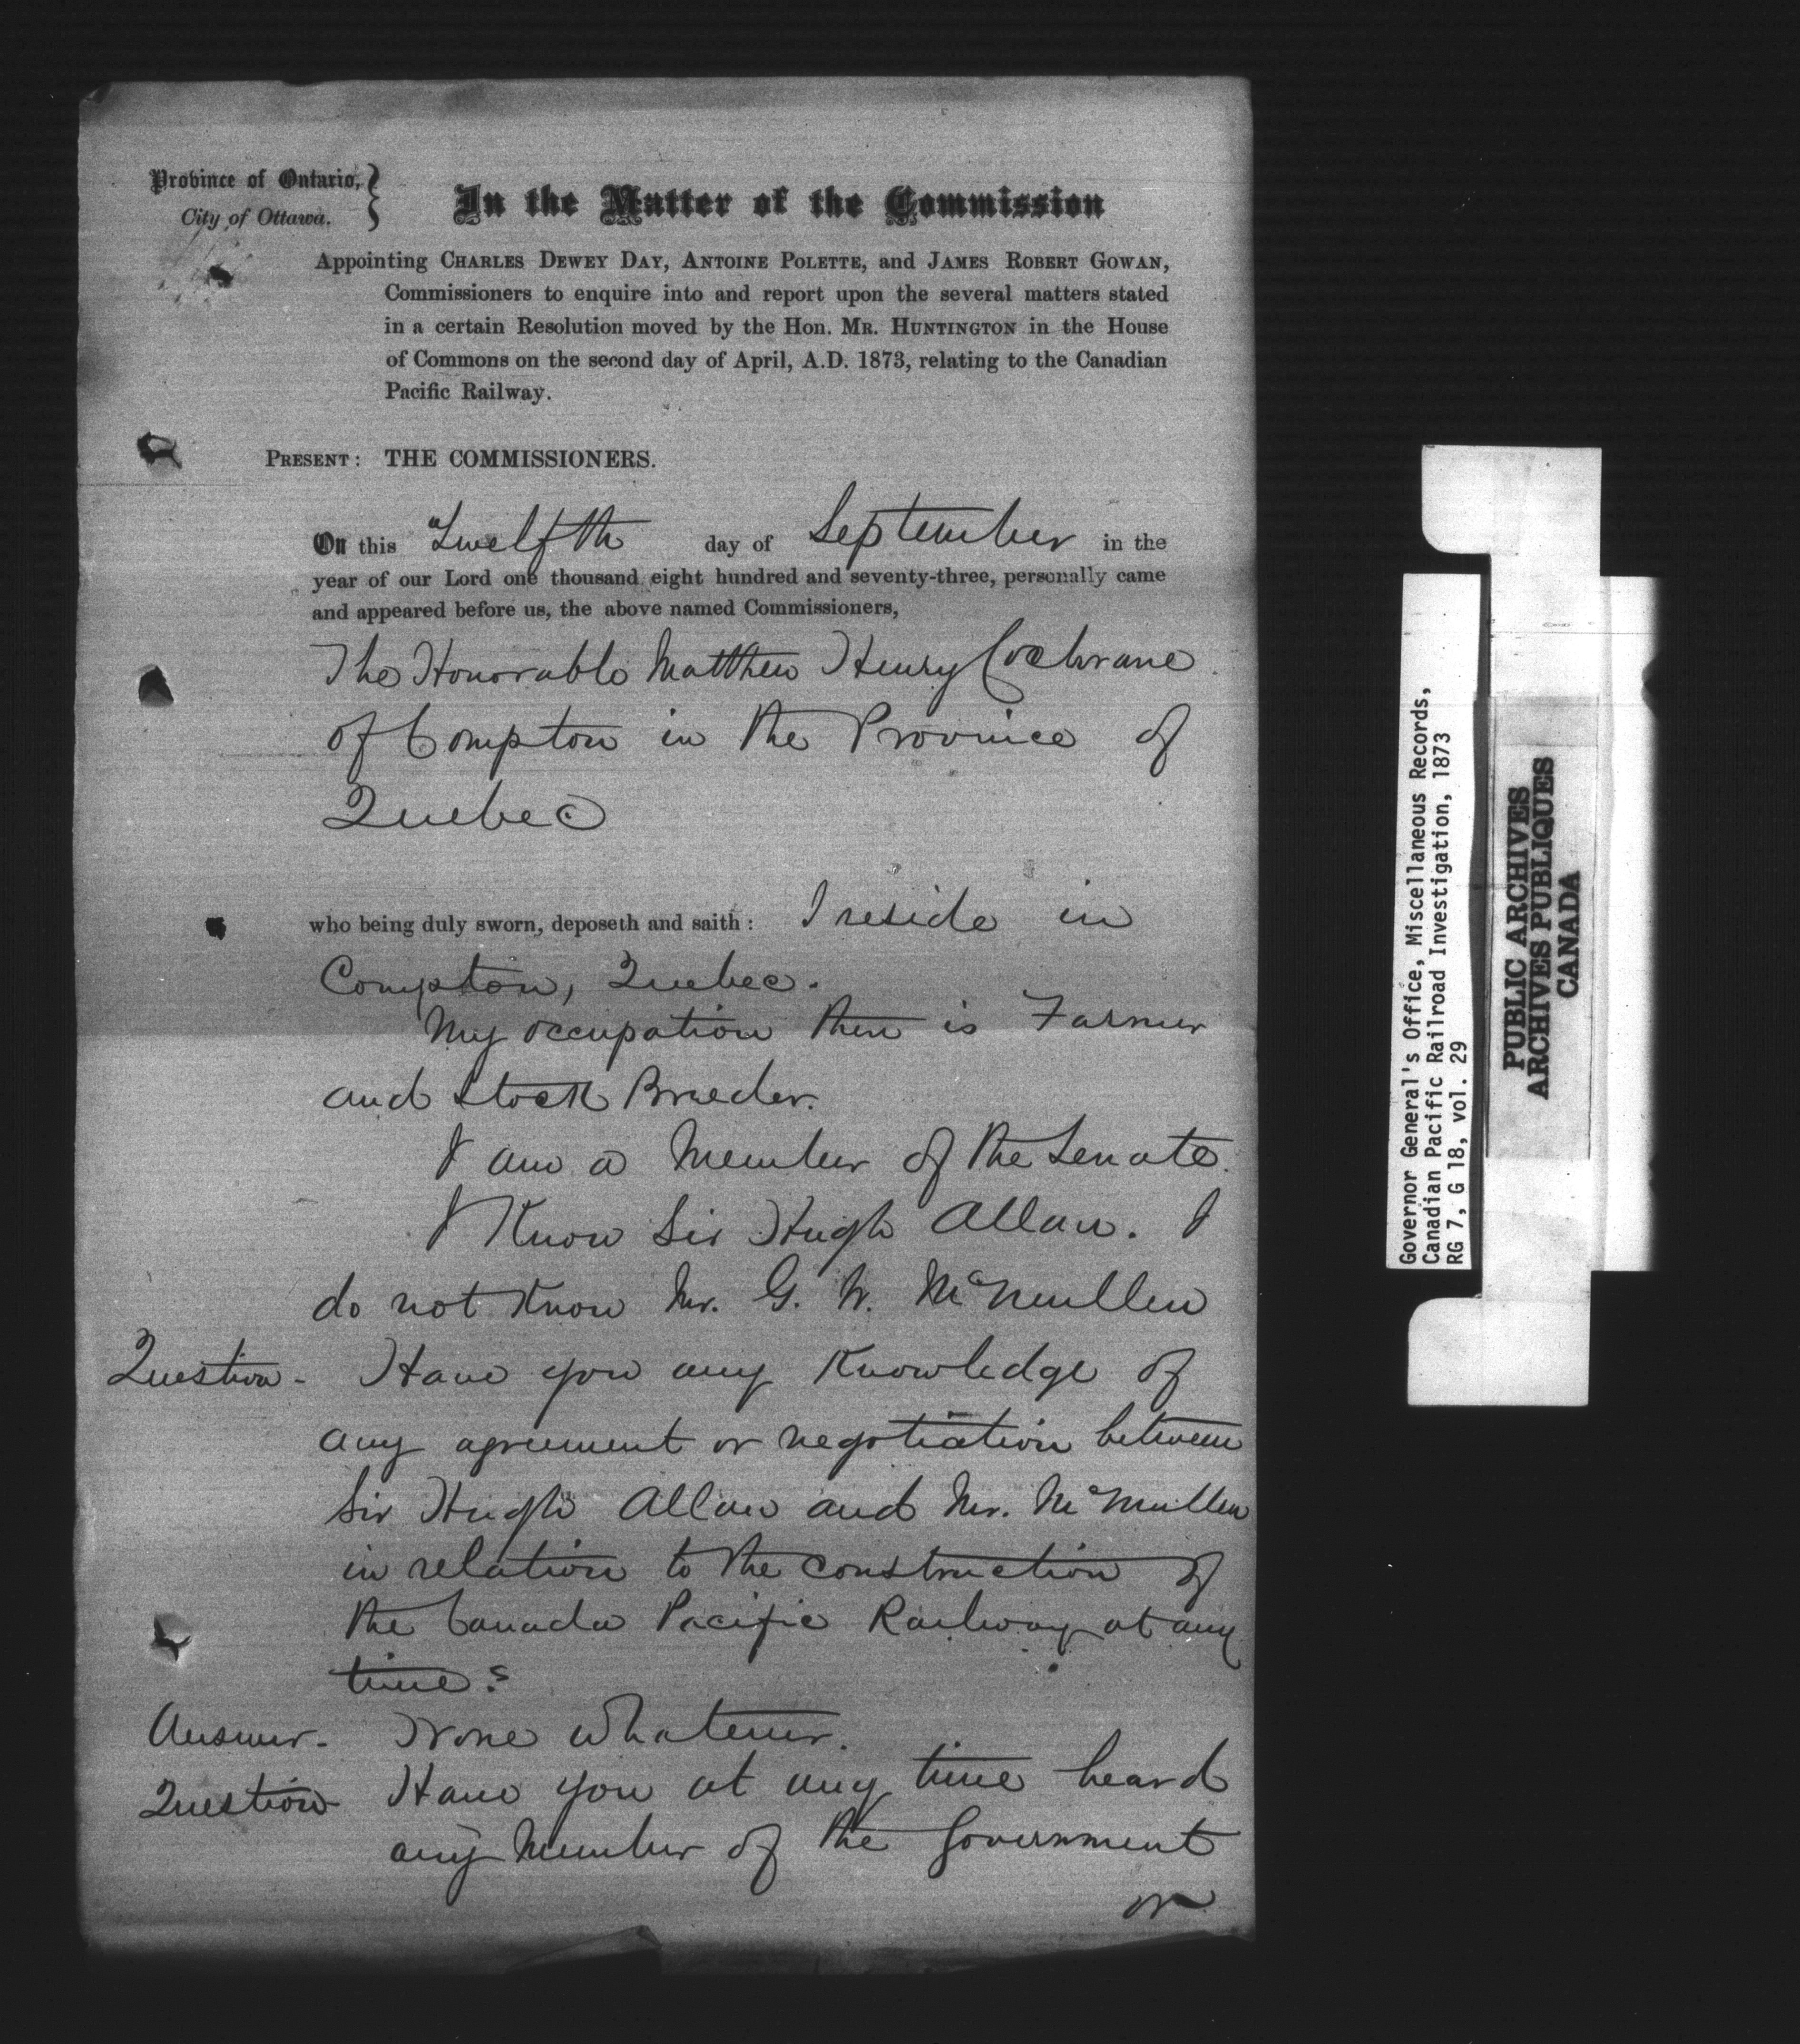 Province of Ontario,
City of Ottawa.
In the Matter of the Commission
Appointing CHARLES DEWEY DAY, ANTOINE POLETTE, and JAMES ROBERT GOWAN,
Commissioners to enquire into and report upon the several matters stated
in a certain Resolution moved by the Hon. MR. HUNTINGTON in the House
of Commons on the second day of April, A.D. 1873, relating to the Canadian
Pacific Railway.
PRESENT: THE COMMISSIONERS.
On this Twelfth day of September in the
year of our Lord one thousand eight hundred and seventy-three, personally came
and appeared before us, the above named Commissioners,
The Honorable Matthew Henry Cochrane
of Compton in the Province of
Quebec
who being duly sworn, deposeth and saith: I reside in
Compton, Quebec.
My occupation then is Farmer
and Stock Breeder.
I am a Member of the Senate.
I Know Sir Hugh Allan. I
do not Know Mr. G. W. McMullen
Question- Have you any Knowledge of
any agreement or negotiation between
Sir Hugh Allan and Mr. McMullen
in relation to the construction of
the Canada Pacific Railway at any
time?
Answer- None whatever.
Question- Have you at any time heard
any Member of the Government
or
Governor General's Office, Miscellaneous Records,
Canadian Pacific Railroad Investigation, 1873
RG 7, G 18, vol. 29
PUBLIC ARCHIVES
ARCHIVES PUBLIQUES
CANADA